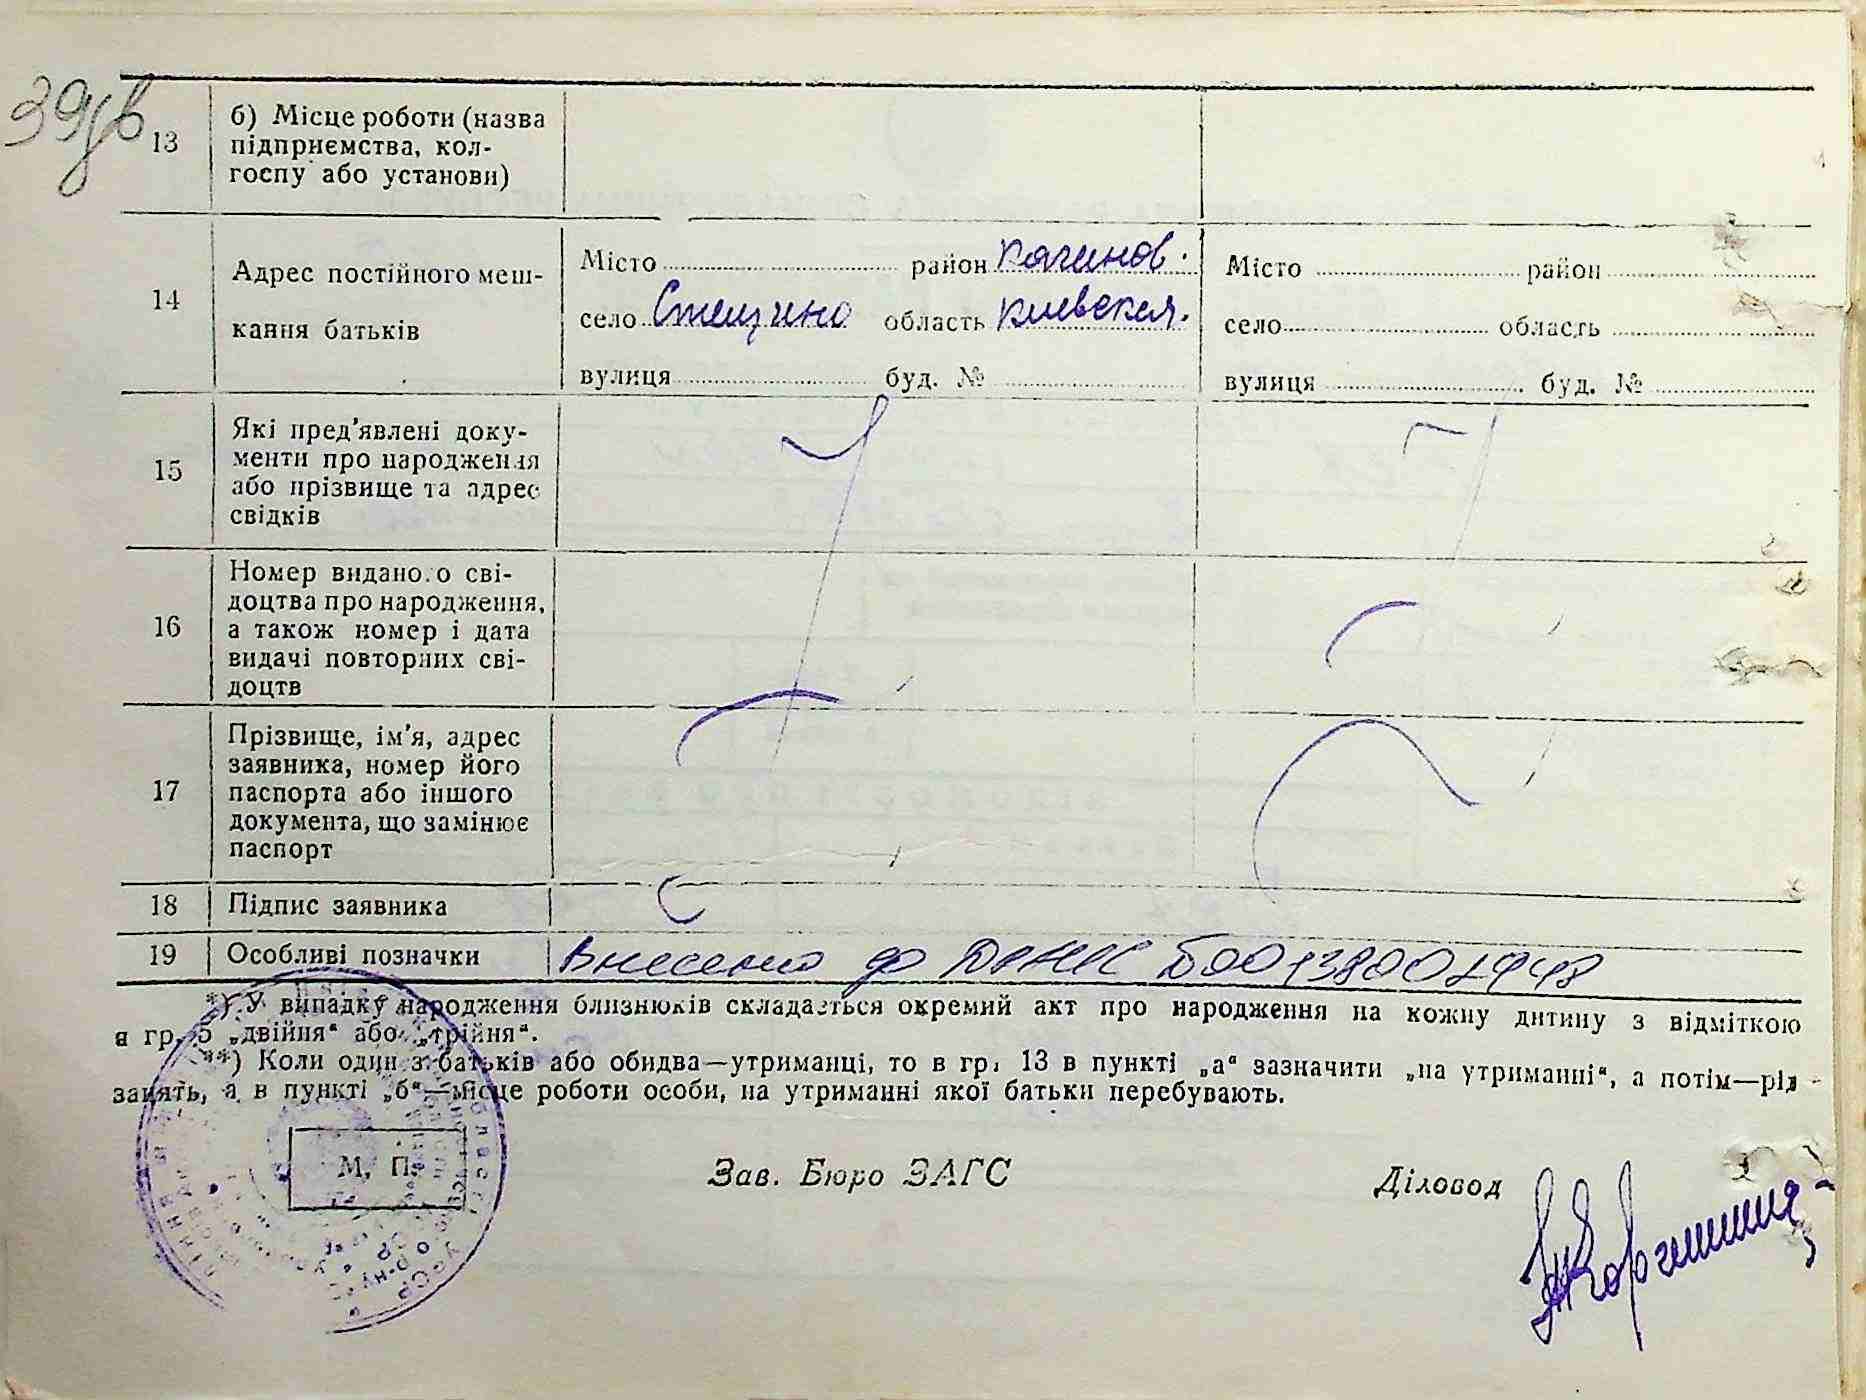 39зв
13
б) Місце роботи (назва
підприємства, кол-
госпу або установи)
14
Адрес постійного меш-
кання батьків
Місто район
село область Киевская.
вулиця буд. №
Місто район
село область
вулиця буд. №
15
Які пред'явлені доку-
менти про народження
або прізвище та адрес
свідків
16
Номер виданого сві-
доцтва про народження,
а також номер і дата
видачі повторних сві-
доцтв
17
Прізвище, ім'я, адрес
заявника, номер його
паспорта або іншого
документа, що замінює
паспорт
18 Підпис заявника
19 Особливі позначки Внесено до
*) У випадку народження близнюків складається окремий акт про народження на кожну дитину з відміткою
в гр. 5 „двійня“ або „трійня“.
**) Коли один з батьків або обидва—утриманці, то в гр. 13 в пункті „а“ зазначити „на утриманні“, а потім—рід
занять, а в пункті „б“—місце роботи особи, на утриманні якої батьки перебувають.
М. П.
Зав. Бюро ЗАГС
Діловод